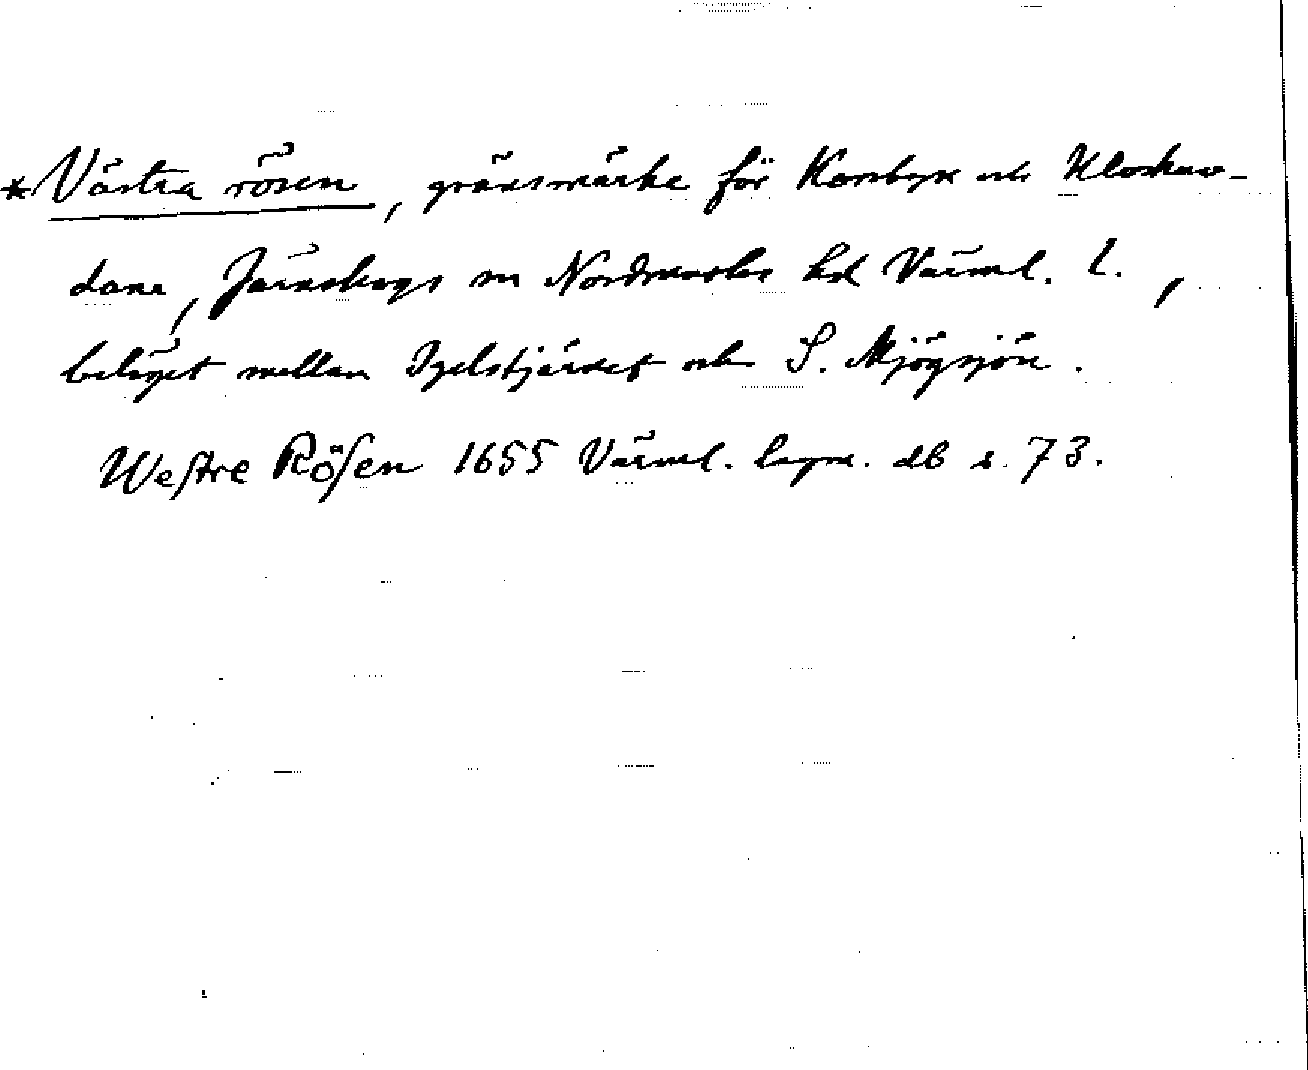 *Västra rösen, gränsmärke för Korsbyn och Klockare-
dane, Järnskogs sn Nordmarks hd Värml. l.,
beläget mellan Igelstjärnet och S. Mjögsjön.
Westre Rösen 1655 Värml. lagm. db s. 73.